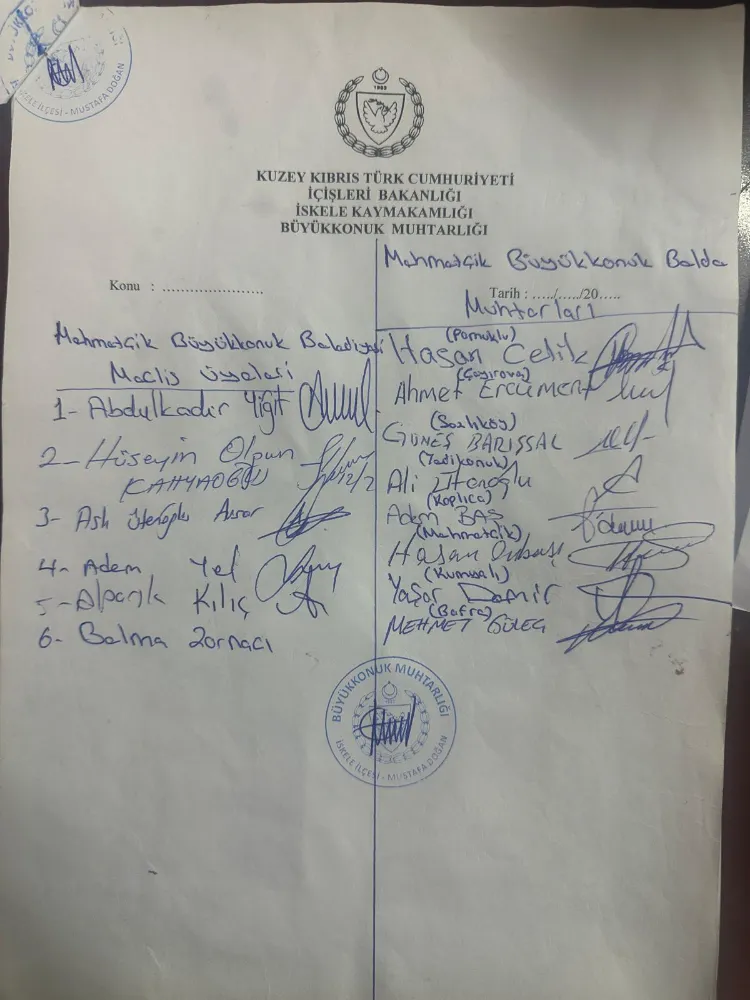 KUZEY KIBRIS TÜRK CUMHURİYETİ
İÇİŞLERİ BAKANLIĞI
İSKELE KAYMAKAMLIĞI
BÜYÜKKONUK MUHTARLIĞI
Konu : ........................
Mehmetçik Büyükkonuk Belediyesi
Meclis üyeleri
1- Abdulkadir Yiğit
2- Hüseyin Olgun
KAHYAOĞLU
3- Aslı
4- Adem Yel
5- Alparık Kılıç
6- Balma Zornacı
Mehmetçik Büyükkonuk Belde
Tarih : ...../...../20.....
Muhtarları
(Pamuklu)
Hasan Çelik
(Çayırova)
Ahmet ERCÜMENT
(Sazlıköy)
GÜNEŞ BARIŞSAL
(Yedikonuk)
Ali
(Kaplıca)
Adem BAŞ
(Mehmetçik)
Hasan
(Kumyalı)
Yaşar Demir
(Bafra)
MEHMET GÜLEÇ
BÜYÜKKONUK MUHTARLIĞI
İSKELE İLÇESİ - MUSTAFA DOĞAN
İSKELE İLÇESİ - MUSTAFA DOĞAN